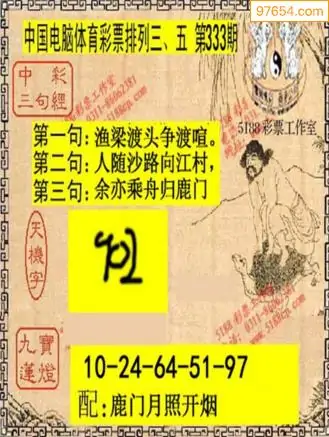 97654.com
中国电脑体育彩票排列三、五 第333期
中彩
三句經
5188彩票工作室
第一句:渔梁渡头争渡喧。
第二句:人随沙路向江村,
第三句:余亦乘舟归鹿门
天機字
九寶
蓮燈
10-24-64-51-97
配:鹿门月照开烟